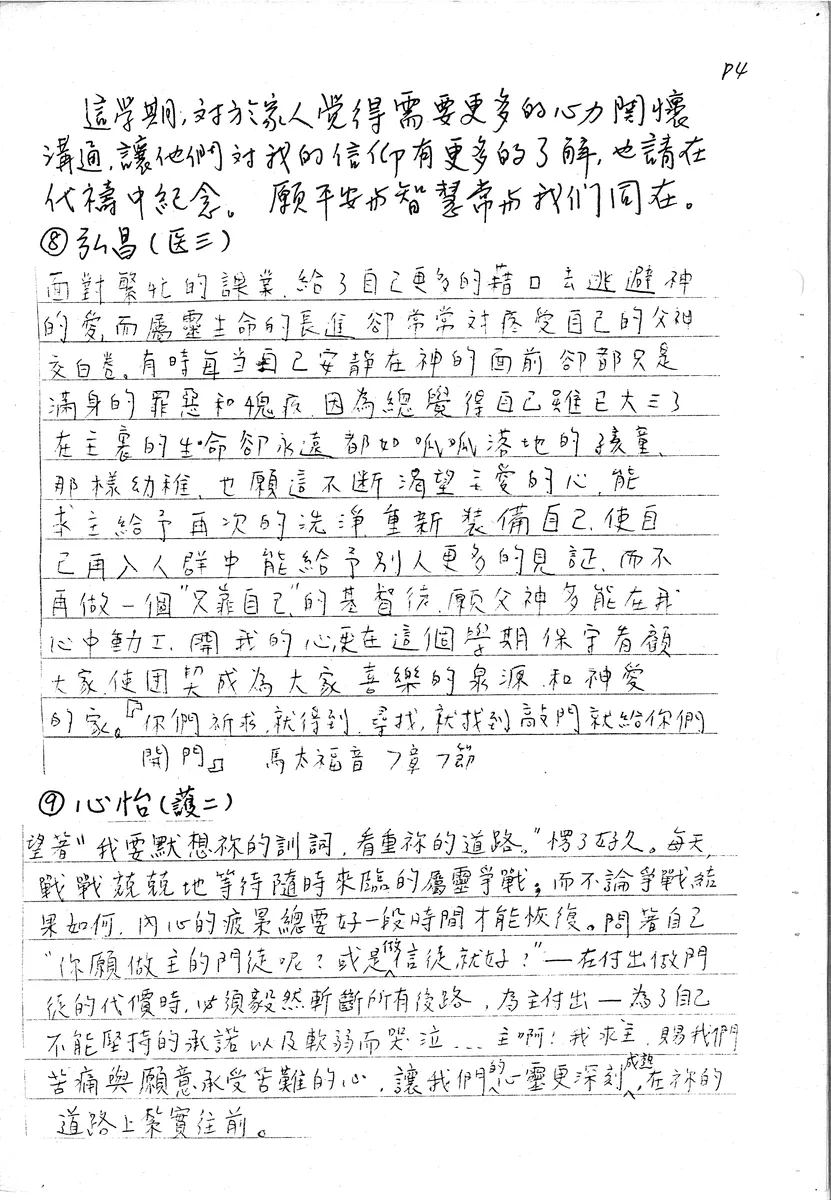 P4
這學期,對於家人覺得需要更多的心力関懷
溝通,讓他們対我的信仰有更多的了解,也請在
代禱中紀念。願平安与智慧常与我们同在。
⑧弘昌(医三)
面對繁忙的課業,給了自己更多的藉口去逃避神
的愛,而屬靈生命的長進卻常常対疼愛自己的父神
交白卷。有時每当自己安靜在神的面前卻都只是
滿身的罪惡和愧疚,因為總覺得自己雖已大三了
在主裏的生命卻永遠都如呱呱落地的孩童,
那樣幼稚,也願這不断渴望主愛的心,能
求主給予再次的洗淨,重新裝備自己,使自
己再入人群中能給予別人更多的見証,而不
再做一個"只靠自己"的基督徒,願父神多能在我
心中動工,開我的心,更在這個學期保守看顧
大家,使団契成為大家喜樂的泉源,和神愛
的家。『你們祈求,就得到,尋找,就找到敲門就給你們
開門』 馬太福音7章7節
⑨心怡(護二)
望著"我要默想祢的訓詞,看重祢的道路。"愣了好久。每天,
戰戰兢兢地等待隨時來臨的屬靈爭戰;而不論爭戰結
果如何,內心的疲累總要好一段時間才能恢復。問著自己
"你願做主的門徒呢?或是做信徒就好?"—在付出做門
徒的代價時,必須毅然斬斷所有後路,為主付出—為了自己
不能堅持的承諾以及軟弱而哭泣…主啊!我求主,賜我們
苦痛與願意承受苦難的心,讓我們的心靈更深刻成熟,在祢的
道路上紮實往前。